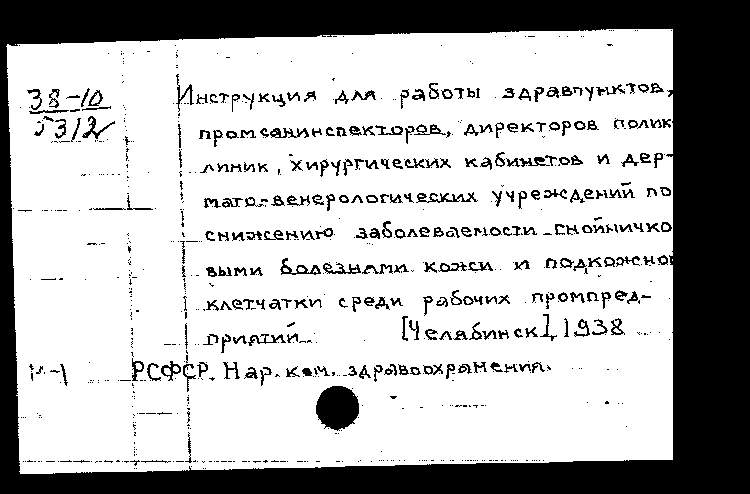 38-10
5312
Инструкция для работы здравпунктов,
промсанинспекторов, директоров полик
линик, хирургических кабинетов и дер-
мато-венерологических учреждений по
снижению заболеваемости гнойничко
выми болезнями кожи и подкожной
клетчатки среди рабочих промпред-
приятий. [Челябинск], 1938
РСФСР. Нар. ком. здравоохранения.